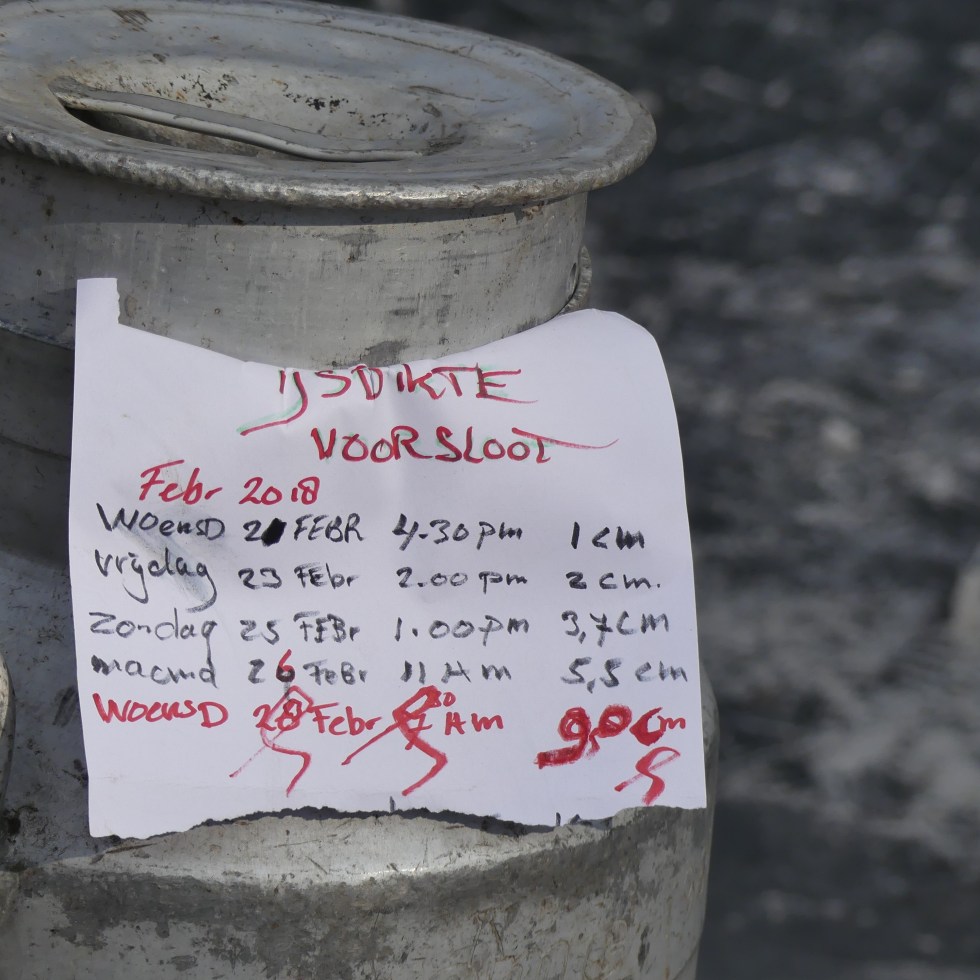 IJSDIKTE
VOORSLOOT
Febr 2018
WOENSD 21 FEBR 4.30 pm 1 cm
vrijdag 23 FEbr 2.00 pm 2 cm.
Zondag 25 FEBr 1.00 pm 3,7 cm
maand 26 FeBr 11 Am 5,5 cm
WOENSD 28 Febr Am 9,0 cm